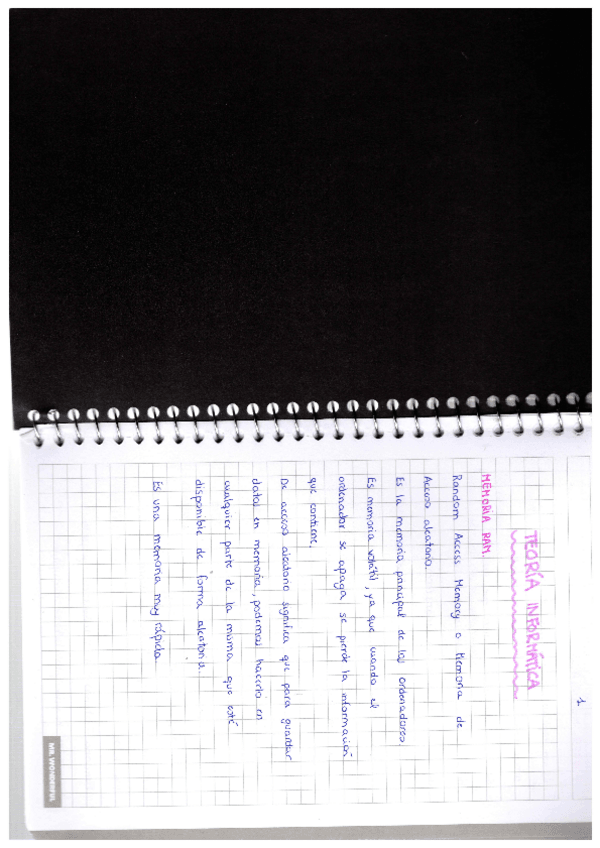 1
TEORÍA INFORMÁTICA
MEMORIA RAM
Random Access Memory o Memoria de
Acceso aleatorio.
Es la memoria principal de los ordenadores.
Es memoria volátil, ya que cuando el
ordenador se apaga se pierde la información
que contiene.
De acceso aleatorio significa que para guardar
datos en memoria, podemos hacerlo en
cualquier parte de la misma que esté
disponible de forma aleatoria.
Es una memoria muy rápida
MR. WONDERFUL